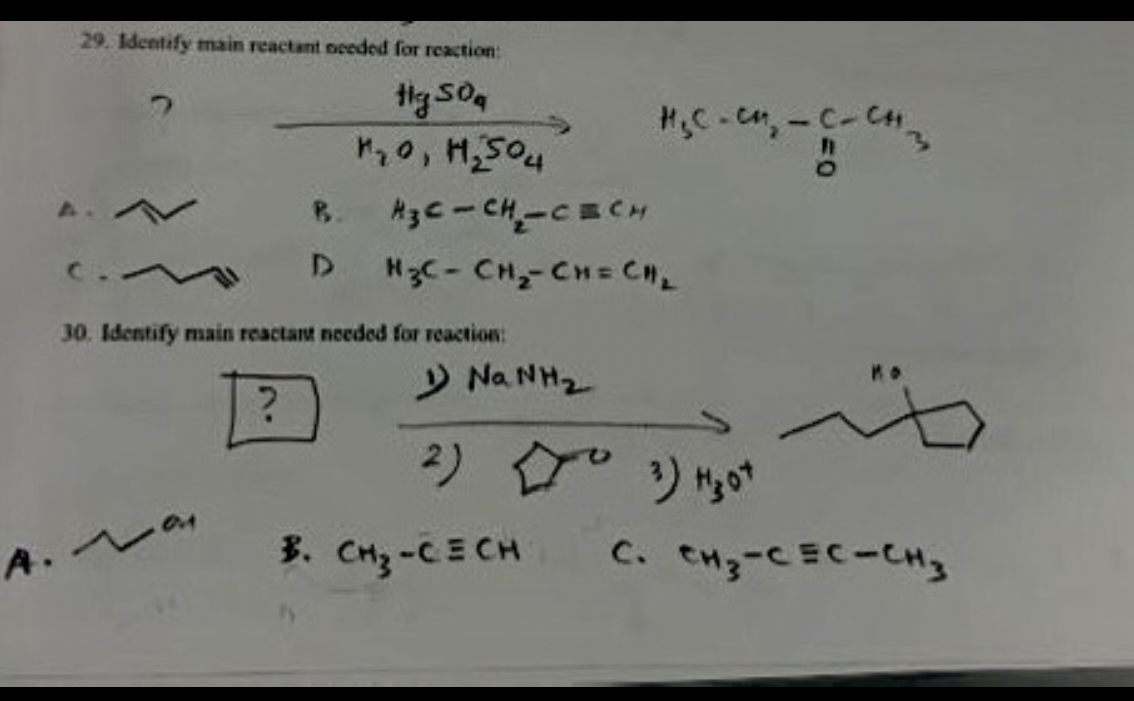 29. Identify main reactant needed for reaction:
? HgSO4 H3C-CH2-C-CH3
H2O, H2SO4 || O
A. B. H3C-CH2-C≡CH
C. D H3C-CH2-CH=CH2
30. Identify main reactant needed for reaction:
? 1) NaNH2 HO
2) O 3) H3O+
A. OH B. CH3-C≡CH C. CH3-C≡C-CH3